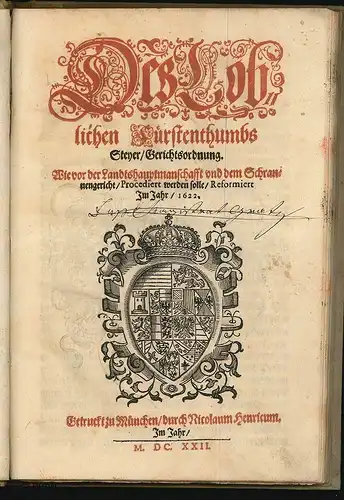 Des Lob-
lichen Fürstenthumbs
Steyer/Gerichtsordnung.
Wie vor der Landtshauptmanschafft vnd dem Schran-
nengericht/Procediert werden solle/Reformiert
Im Jahr/1622.
Getruckt zu München/durch Nicolaum Henricum.
Im Jahr/
M. DC. XXII.